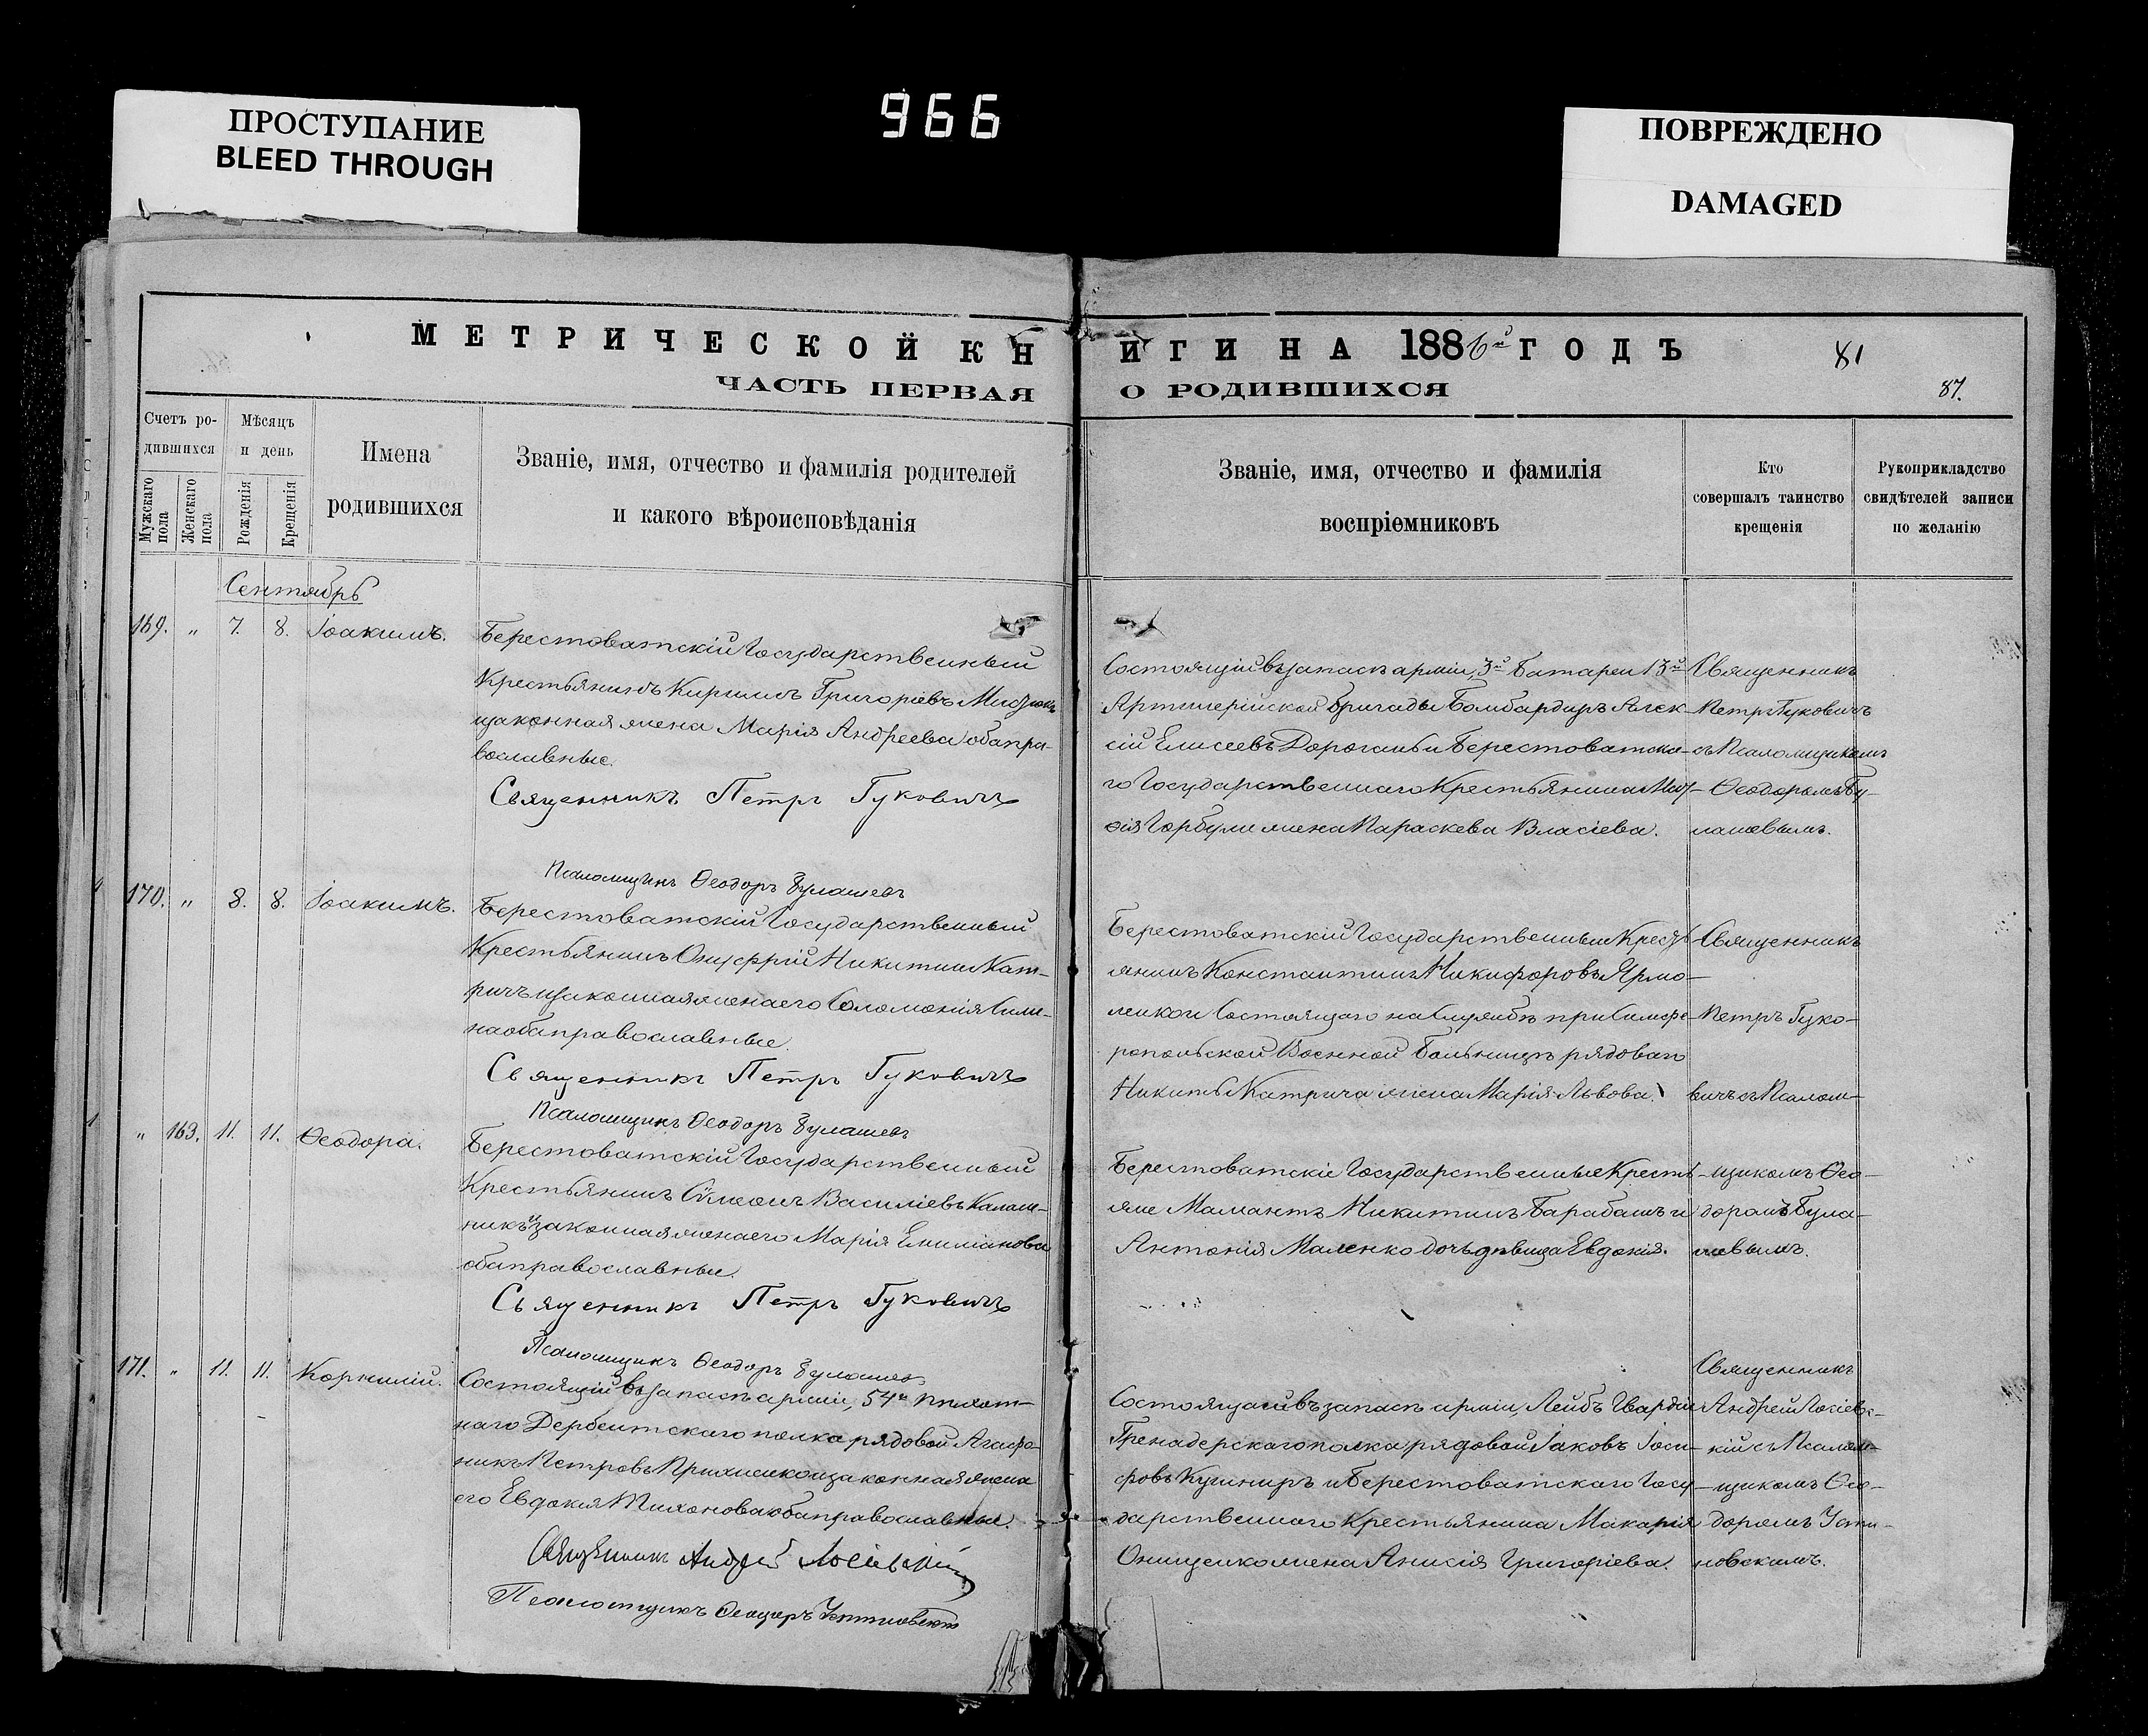 ПРОСТУПАНИЕ
BLEED THROUGH
966
ПОВРЕЖДЕНО
DAMAGED
МЕТРИЧЕСКОЙ КН
ЧАСТЬ ПЕРВАЯ
ИГИ НА 1886й ГОДЪ
О РОДИВШИХСЯ
81
87.
Счетъ ро-
дившихся
Мужскаго пола
Женскаго пола
Мѣсяцъ
и день
Рожденія
Крещенія
Имена
родившихся
Званіе, имя, отчество и фамилія родителей
и какого вѣроисповѣданія
Званіе, имя, отчество и фамилія
воспріемниковъ
Кто
совершалъ таинство
крещенія
Рукоприкладство
свидѣтелей записи
по желанію
Сентябрь
169. " 7. 8. Іоакимъ.
Берестоватскій Государственный
Крестьянинъ Кириллъ Григоріевъ
и законная жена Марія Андреева оба пра-
вославные.
Священникъ Петръ Гуковичъ
Псаломщикъ Ѳеодоръ Булашевъ
Состоящій въ запасѣ арміи, 3й Батареи 13й
Артилерійской Бригады Бомбардиръ Алек-
сій Елисеевъ и Берестоватска-
го Государственнаго Крестьянина
Горбули жена Параскева Власіева.
Священникъ
Петръ Гуковичъ
съ Псаломщикомъ
Ѳеодоромъ Бу-
лашевымъ.
170. " 8. 8. Іоакимъ.
Берестоватскій Государственный
Крестьянинъ Онуфрій Никитинъ Кат-
ричъ и законная жена его Соломонія
на оба православные.
Священникъ Петръ Гуковичъ
Псаломщикъ Ѳеодоръ Булашевъ
Берестоватскій Государственный Кресть-
янинъ Константинъ Никифоровъ Ярмо-
ленко и Состоящаго на службѣ при Симфе-
ропольской Военной Больницѣ рядоваго
Никиты Катрича жена Марія Львова.
Священникъ
Петръ Гуко-
вичъ съ Псалом-
щикомъ Ѳео-
доромъ Була-
шевымъ.
" 163. 11. 11. Ѳеодора.
Берестоватскій Государственный
Крестьянинъ Сѵмеонъ Василіевъ Калаш-
никъ и законная жена его Марія Емиліанова
оба православные.
Священникъ Петръ Гуковичъ
Псаломщикъ Ѳеодоръ Булашевъ
Берестоватскіе Государственные Кресть-
яне Мамантъ Никитинъ Барабашъ и
Антонія Маленко дочь дѣвица Евдокія.
171. " 11. 11. Корнилій.
Состоящій въ запасѣ арміи, 54й Пѣхот-
наго Дербентскаго полка рядовой Агафо-
никъ Петровъ и законная жена
его Евдокія Тихонова оба православные.
Священникъ Андрей Лосіевскій
Псаломщикъ Ѳеодоръ Устиновскій
Состоящій въ запасѣ арміи, Лейбъ Гвардіи
Гренадерскаго полка рядовой Іаковъ Іоси-
фовъ Кушниръ и Берестоватскаго Госу-
дарственнаго Крестьянина Макарія
Онищенко жена Анисія Григоріева.
Священникъ
Андрей Лосіевс-
кій съ Псалом-
щикомъ Ѳео-
доромъ Усти-
новскимъ.